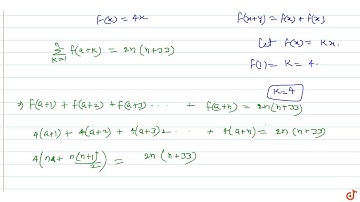 f(x) = 4x
f(x+y) = f(x) + f(x)
Let f(x) = Kx.
f(1) = K = 4.
K=4
n
∑ f(a+k) = 2n(n+33)
k=1
⇒ f(a+1) + f(a+2) + f(a+3) · · · · + f(a+n) = 2n(n+33)
4(a+1) + 4(a+2) + 4(a+3) - · · · + 4(a+n) = 2n(n+33)
4(na + n(n+1)/2) = 2n(n+33)